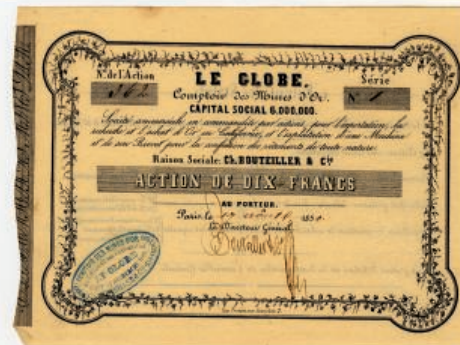 N.º de l'Action
LE GLOBE.
Série
362
Comptoir des Mines d'Or.
N.º 1
CAPITAL SOCIAL 6.000.000.
Société commerciale en commandite par actions, pour l'importation, la
recherche et l'achat d'Or en Californie, et l'exploitation d'une Machine
et de son Brevet pour la confection des vêtements de toute nature.
Raison Sociale: Ch. BOUTEILLER & C.ie
ACTION DE DIX FRANCS
AU PORTEUR.
Paris, le 17 août 185
Le Directeur Général
LE GLOBE